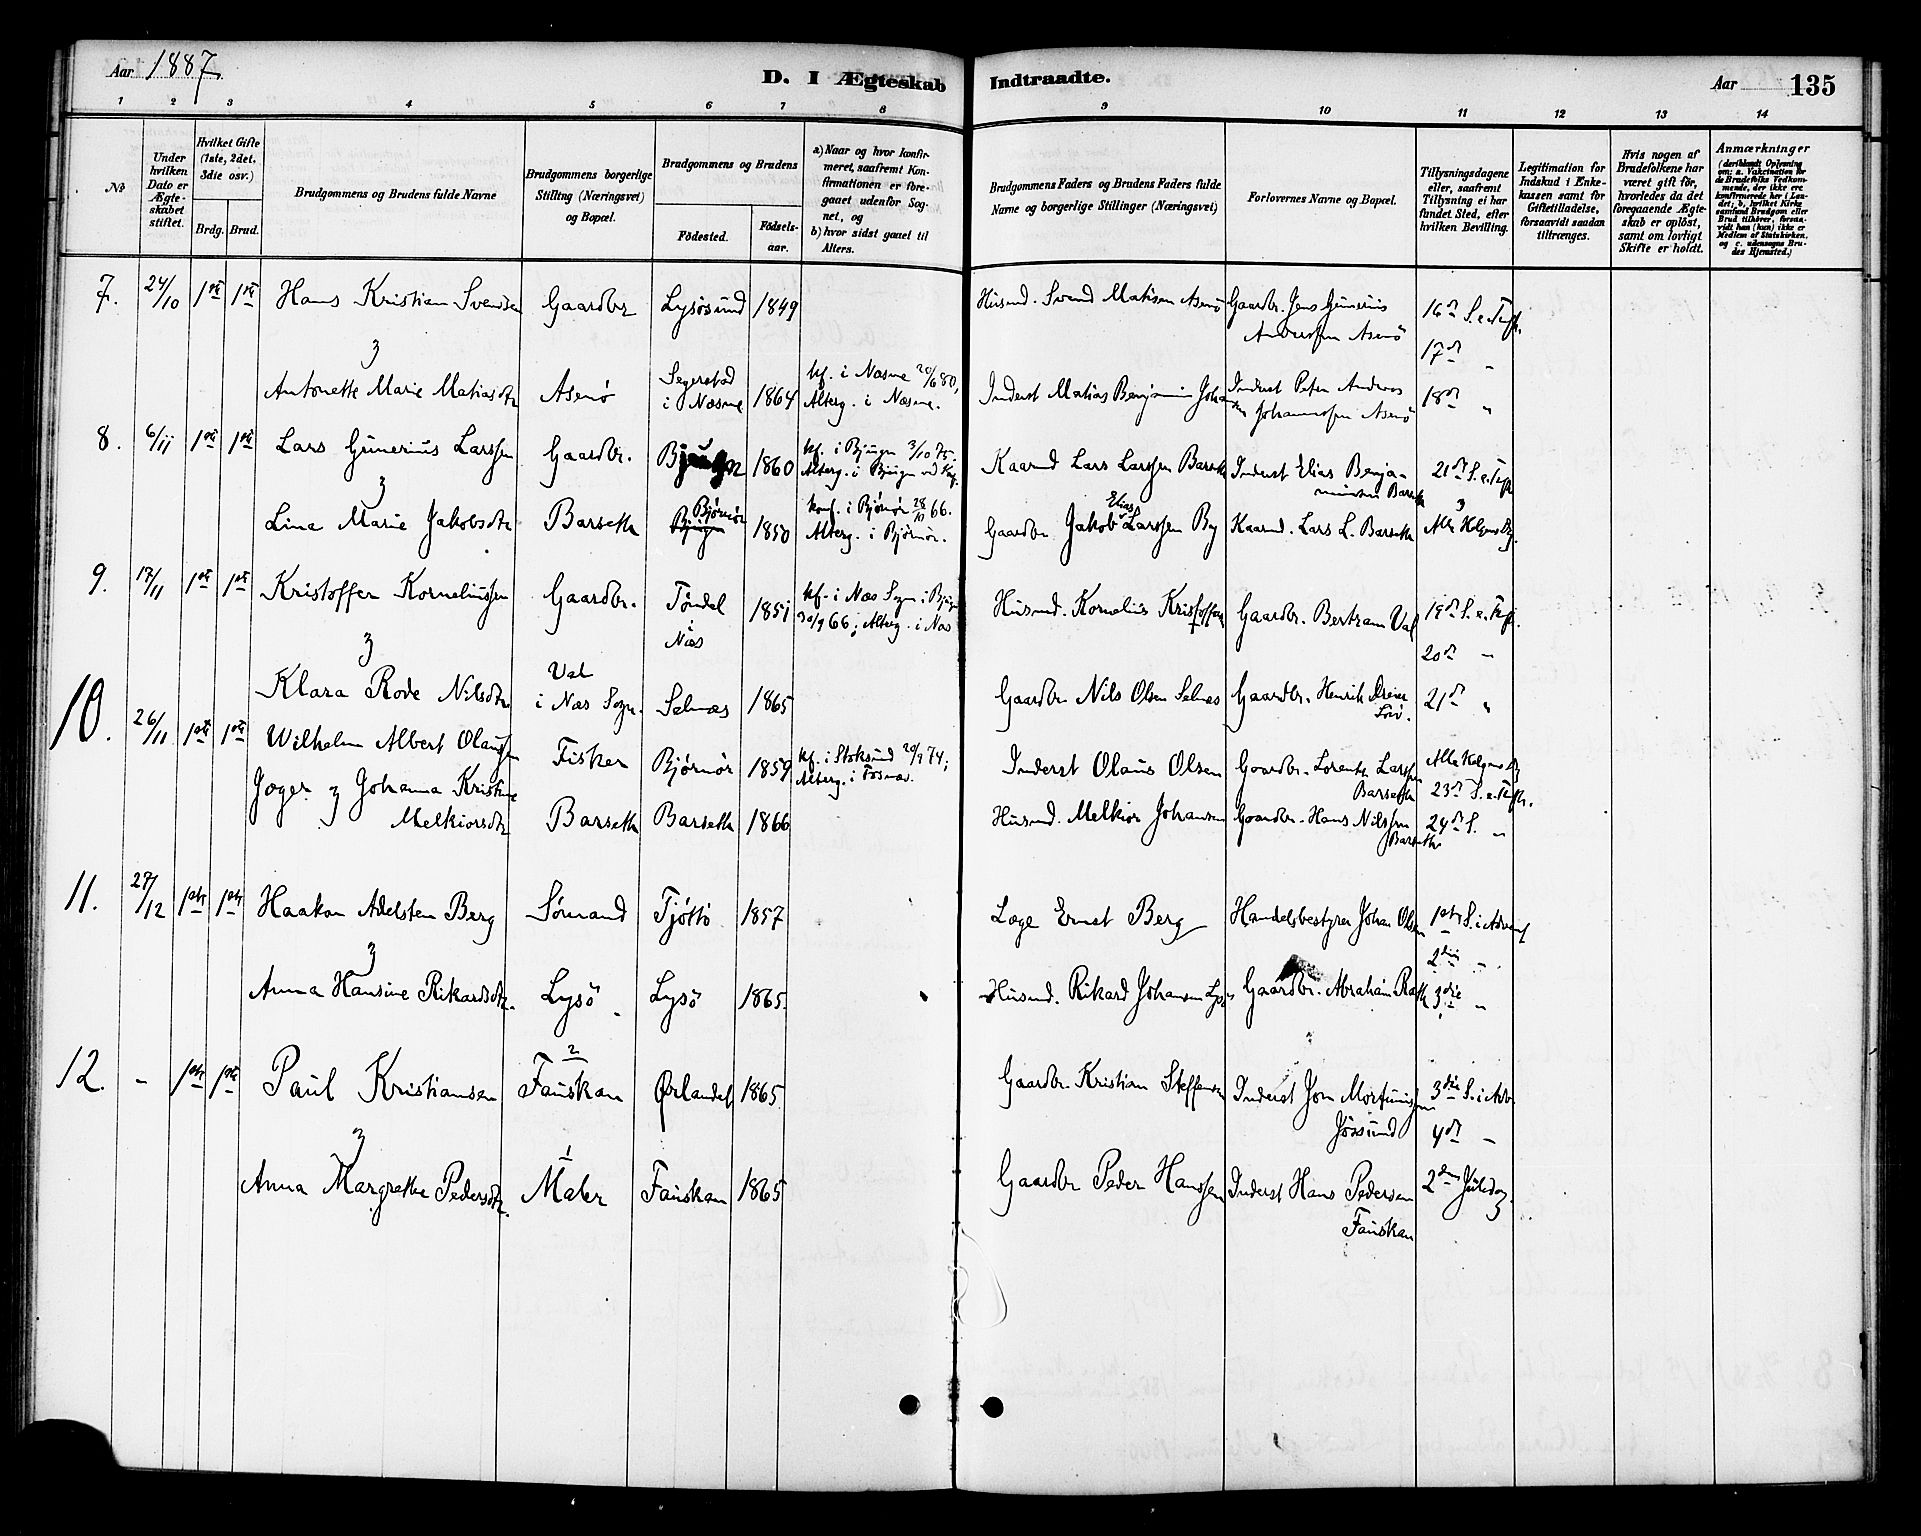 Aar 1887.
D. I Ægteskab Indtraadte.
Aar 135
1 2 3 4 5 6 7 8 9 10 11 12 13 14
No
Under hvilken Dato er Ægteskabet stiftet.
Hvilket Gifte (1ste, 2det, 3die osv.)
Brdg. Brud.
Brudgommens og Brudens fulde Navne
Brudgommens borgerlige Stilling (Næringsvei) og Bopæl.
Brudgommens og Brudens
Fødested.
Fødselsaar.
a) Naar og hvor konfirmeret, saafremt Konfirmationen er foregaaet udenfor Sognet, og
b) hvor sidst gaaet til Alters.
Brudgommens Faders og Brudens Faders fulde Navne og borgerlige Stillinger (Næringsvei)
Forlovernes Navne og Bopæl.
Tillysningsdagene eller, saafremt Tillysning ei har fundet Sted, efter hvilken Bevilling.
Legitimation for Indskud i Enkekassen samt for Giftetilladelse, forsaavidt saadan tiltrænges.
Hvis nogen af Brudefolkene har været gift før, hvorledes da det foregaaende Ægteskab er opløst, samt om lovligt Skifte er holdt.
Anmærkninger
(deriblandt Oplysning om: a. Vakcination for de Brudefolks Vedkommende, der ikke ere konfirmerede her i Landet; b. hvilket Kirkesamfund Brudgom eller Brud tilhører, forsaavidt han (hun) ikke er Medlem af Statskirken, og c. udensogns Brudes Hjemsted.)
7. 24/10 1ste 1ste Hans Kristian Svendsen Gaardbr Lysøsund 1849 Husmd. Svend Matisen Asenø Gaardbr. Jens Gunerius Anderssen Asenø 16de S.e.Trefh.
17de "
Antonette Marie Matiasdtr Asenø Segerstad i Næsne 1864 kf. i Næsne 20/6 80, Alterg. i Næsne. Inderst Matias Benjamin Johansen Inderst Peter Andreas Johannessen Asenø 18de "
8. 6/11 1ste 1ste Lars Gunerius Larssen Gaardbr. Bjugn 1860 kf. i Bjugn 3/10 75. Alterg. i Bjugn ved Knf. Kaarmd Lars Larssen Barseth Inderst Elias Benjaminsen Barseth 21de S.e.Trefh
Lina Marie Jakobsdtr Barseth Bjørnør 1850 konf. i Bjørnør 28/10 66. Alterg. i Bjørnør. Gaardbr Jakob Elias Larssen By Kaarmd. Lars L. Barseth Alle Helgens Dg.
9. 17/11 1ste 1ste Kristoffer Korneliussen Gaardbr. Tøndel i Næs 1851 kf. i Næs Sogn i Bjugn 30/9 66; Alterg. i Næs Husmd. Kornelius Kristoffersen Gaardbr. Bertram Val 19de S.e.Trefh.
20de "
Klara Rode Nilsdtr Val i Næs Sogn. Selnæs 1865 Gaardbr Nils Olsen Selnæs Gaardbr. Henrik Dreier 21de "
10. 26/11 1ste 1ste Wilhelm Albert Olaussen Fisker Bjørnør 1859 kf. i Stoksund 20/9 74; Alterg. i Fosnæs. Inderst Olaus Olsen Gaardbr. Lorents Larssen Barseth Alle Helgens Dg
23de S.e.Trefh.
Johanna Kristine Melkiorsdtr Barseth Barseth 1866 Husmd. Melkior Johansen Gaardbr. Hans Nilssen Barseth 24de S. "
11. 27/12 1ste 1ste Haakon Adelsten Berg Sømand Tjøttø 1857 Læge Ernst Berg Handelsbestyrer Johan Olsen 1ste S. i Advent
2den "
Anna Hansine Rikardsdtr. Lysö Lysö 1865. Husmd. Rikard Johansen Lysö Gaardbr. Abraham Rath 3die "
12. - 1ste 1ste Paul Kristiansen 2 Fauskan Ørlandet 1865 Gaardbr Kristian Steffensen Inderst Jon Mortinussen Jøssund 3die S. i Adv.
4de "
Anna Margrethe Pedersdtr. 1 Maler Fauskan 1865 Gaardbr Peder Hanssen Inderst Hans Pedersen Fauskan 2den Juledag.